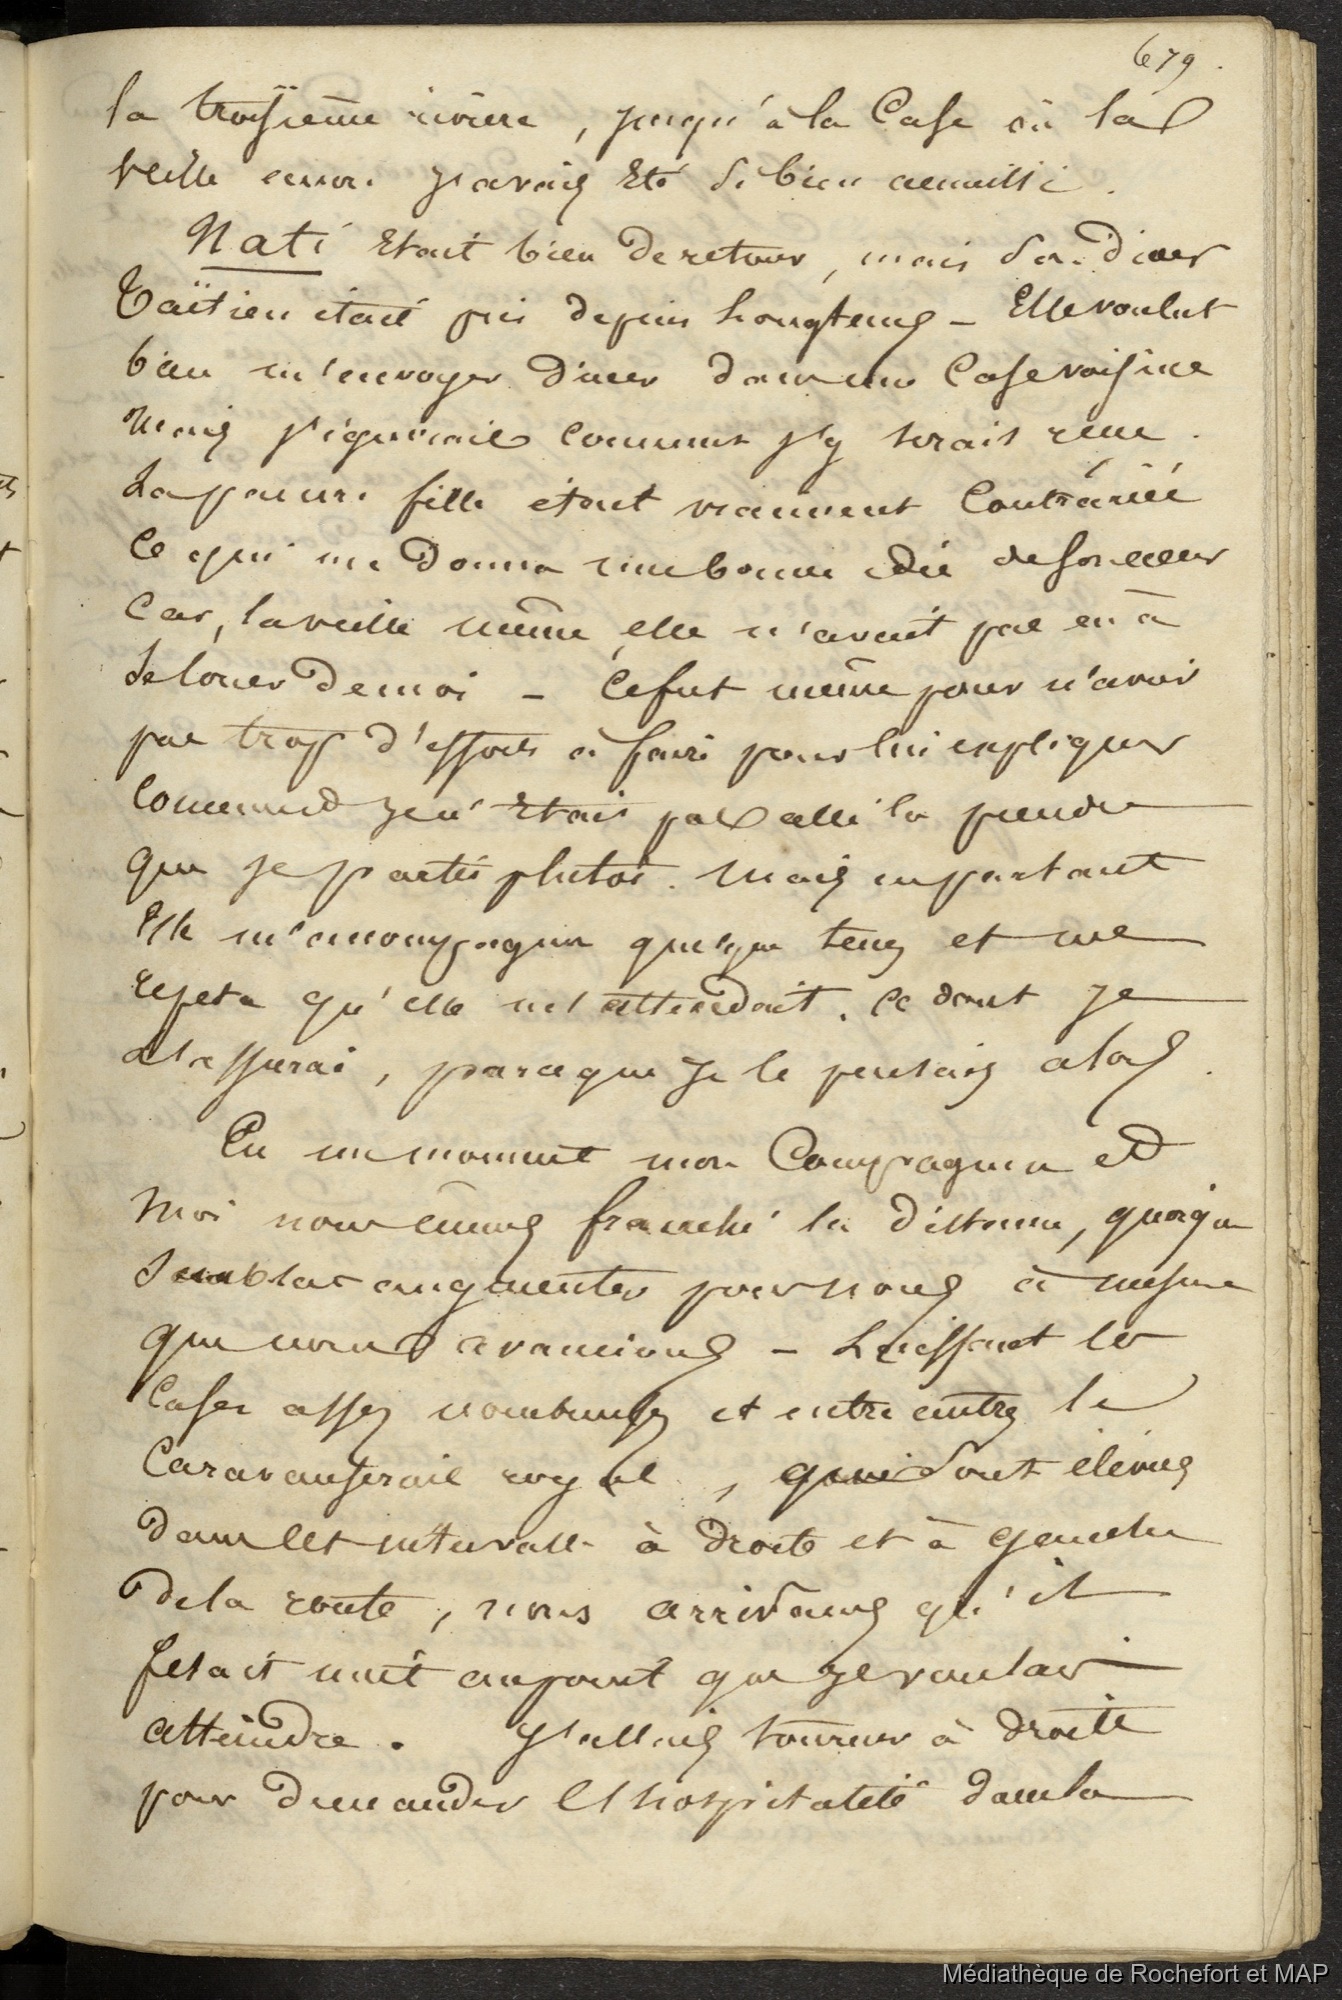 679.
la troisième rivière, jusqu'à la Case où la
veille encore j'avais été si bien accueilli.
Nati était bien de retour, mais son diner
Taïtien était pris depuis longtems - Elle voulut
bien m'envoyer diner dans une Case voisine
mais j'ignorais comment j'y serais reçu.
La pauvre fille était vraiment Contrariée
Ce qui me donna une bonne idée de son cœur
Car, la veille même, elle n'avait pas eu à
Se louer de moi - Ce fut même pour n'avoir
pas trop d'efforts à faire pour lui expliquer
Comment je n'étais pas allé la prendre
que je partis plutôt. Mais en partant
Elle m'accompagna quelque tems et me
répéta qu'elle m'attendait. Ce dont je
l'assurai, parceque je le pensais alors.
En un moment mon Compagnon et
Moi nous eûmes franchi la distance, quoiqu
Semblat augmenter pour nous à mesure
que nous avancions - Laissant les
Cases assez nombreuses et entre autres le
Caravanserail royal, qui sont élevées
dans cet intervalle à droite et à gauche
de la route, nous arrivames qu'il
fesait nuit au point que je voulais
atteindre. J'allais tourner à droite
pour demander l'hospitalité dans la
Médiathèque de Rochefort et MAP